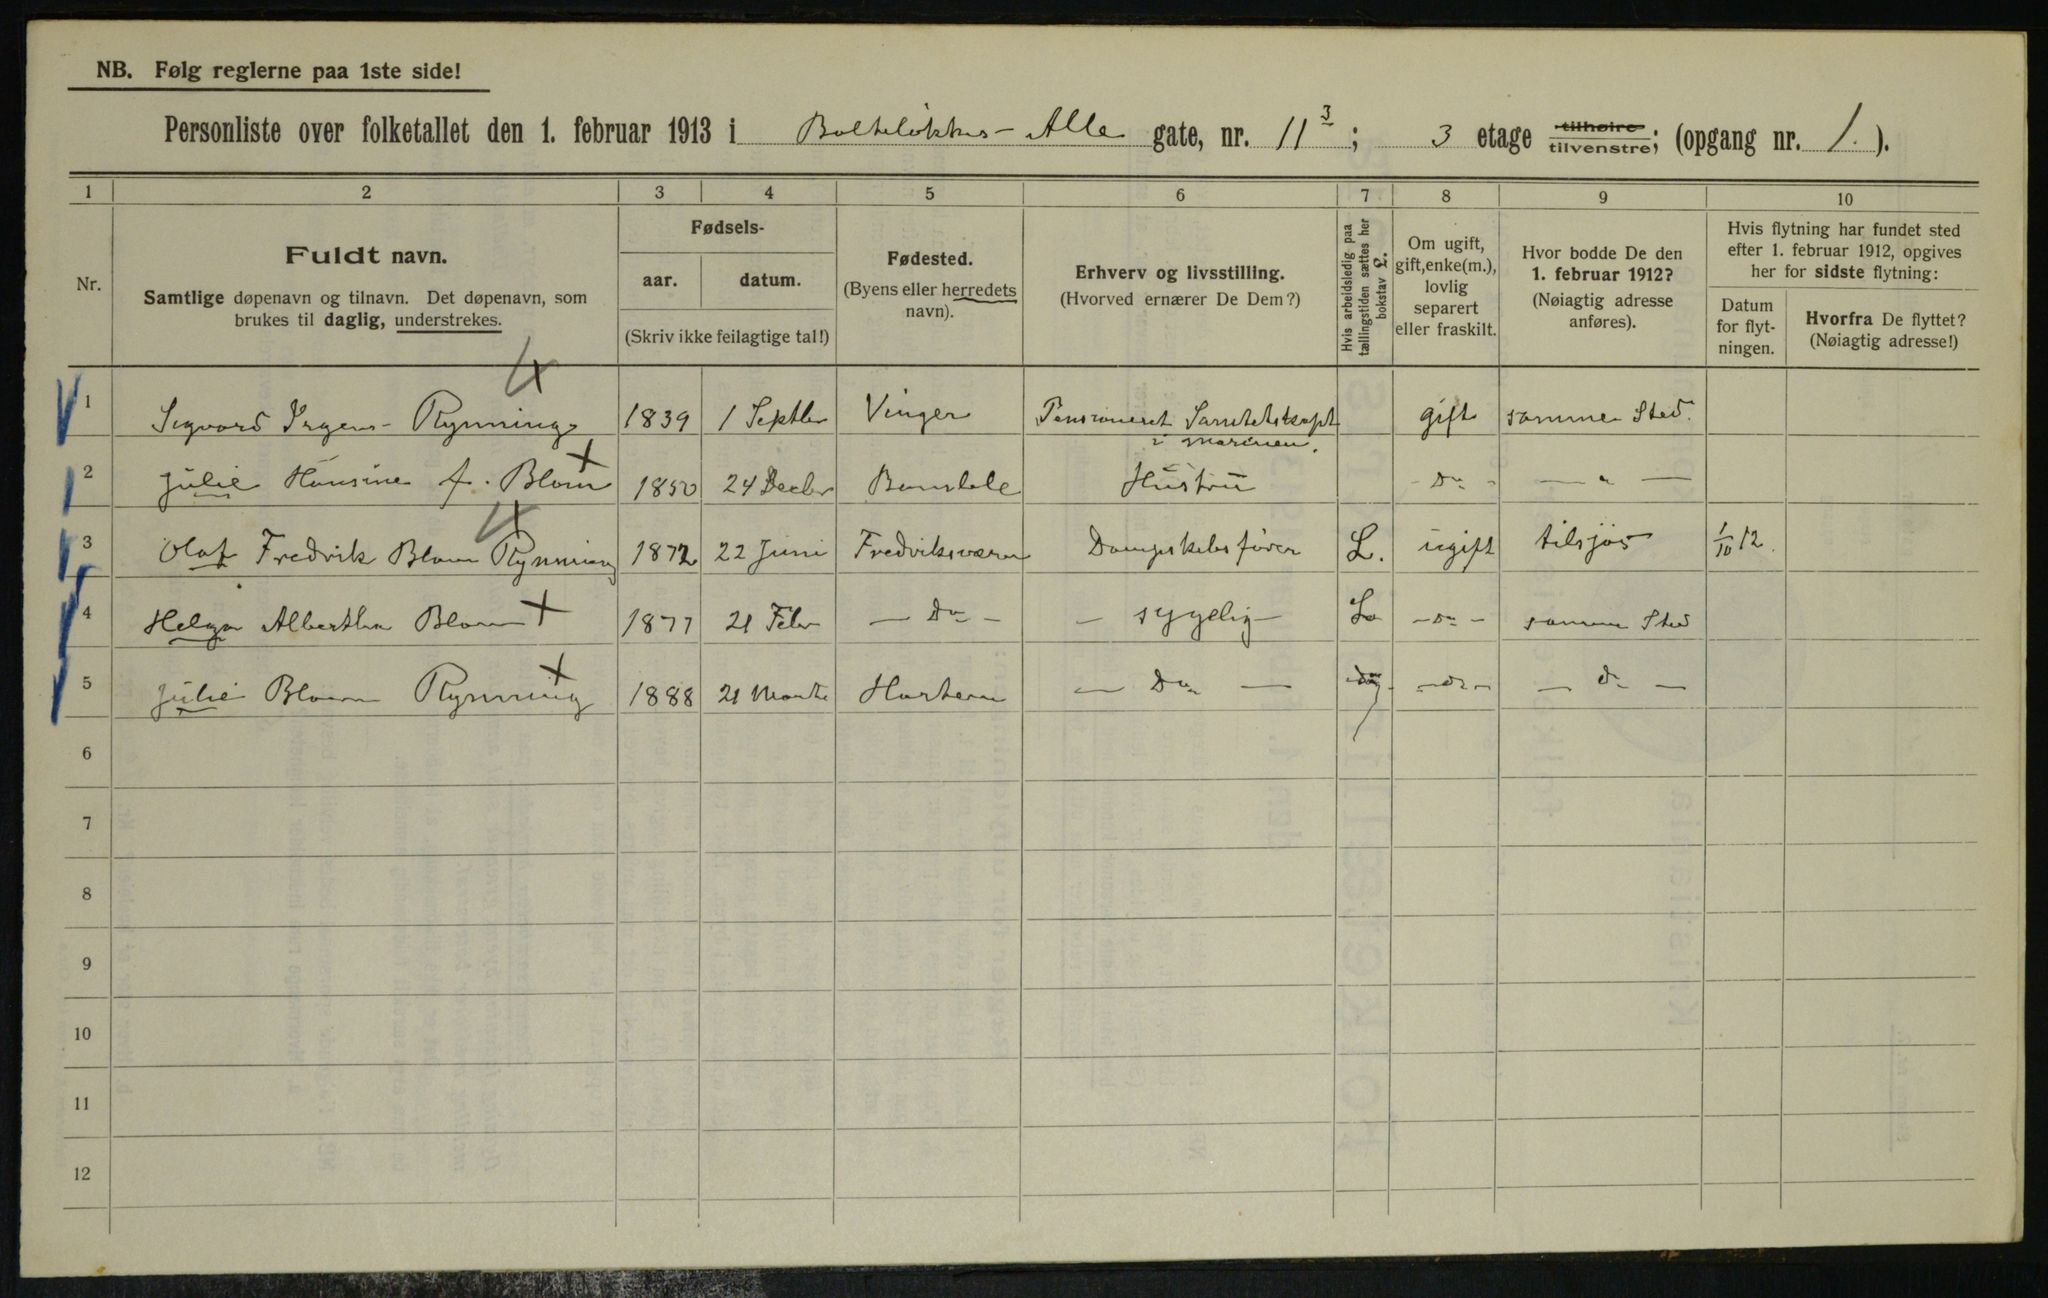 NB. Følg reglerne paa 1ste side!
Personliste over folketallet den 1. februar 1913 i Bolteløkkes - Alle gate, nr. 11 3; 3 etage tilhøire tilvenstre; (opgang nr. 1.).
1 2 3 4 5 6 7 8 9 10
Nr.
Fuldt navn.
Samtlige døpenavn og tilnavn. Det døpenavn, som
brukes til daglig, understrekes.
Fødsels-
aar. datum.
(Skriv ikke feilagtige tal!)
Fødested.
(Byens eller herredets
navn).
Erhverv og livsstilling.
(Hvorved ernærer De Dem?)
Hvis arbeidsledig paa
tællingstiden sættes her
bokstav L.
Om ugift,
gift, enke(m.),
lovlig
separert
eller fraskilt.
Hvor bodde De den
1. februar 1912?
(Nøiagtig adresse
anføres).
Hvis flytning har fundet sted
efter 1. februar 1912, opgives
her for sidste flytning:
Datum
for flyt-
ningen.
Hvorfra De flyttet?
(Nøiagtig adresse!)
1 Sigvard Irgens - Rynning 1839 1 Septbr Vinger Pensioneret Sanitetskapt gift samme Sted.
i marinen.
2 Julie Hansine f. Blom 1850 24 Decbr Hustru - Do - — " —
3 Olaf Fredrik Blom Rynning 1872 22 Juni Fredriksværn Dampskibsfører L. ugift tilsjøs 1/10 12.
4 Helga Alberthe Blom 1877 21 Febr — Do - - sygelig - L. - Do - samme Sted
5 Julie Blom Rynning 1888 21 Marts Horten — Do — Do - - Do - — Do —
6
7
8
9
10
11
12